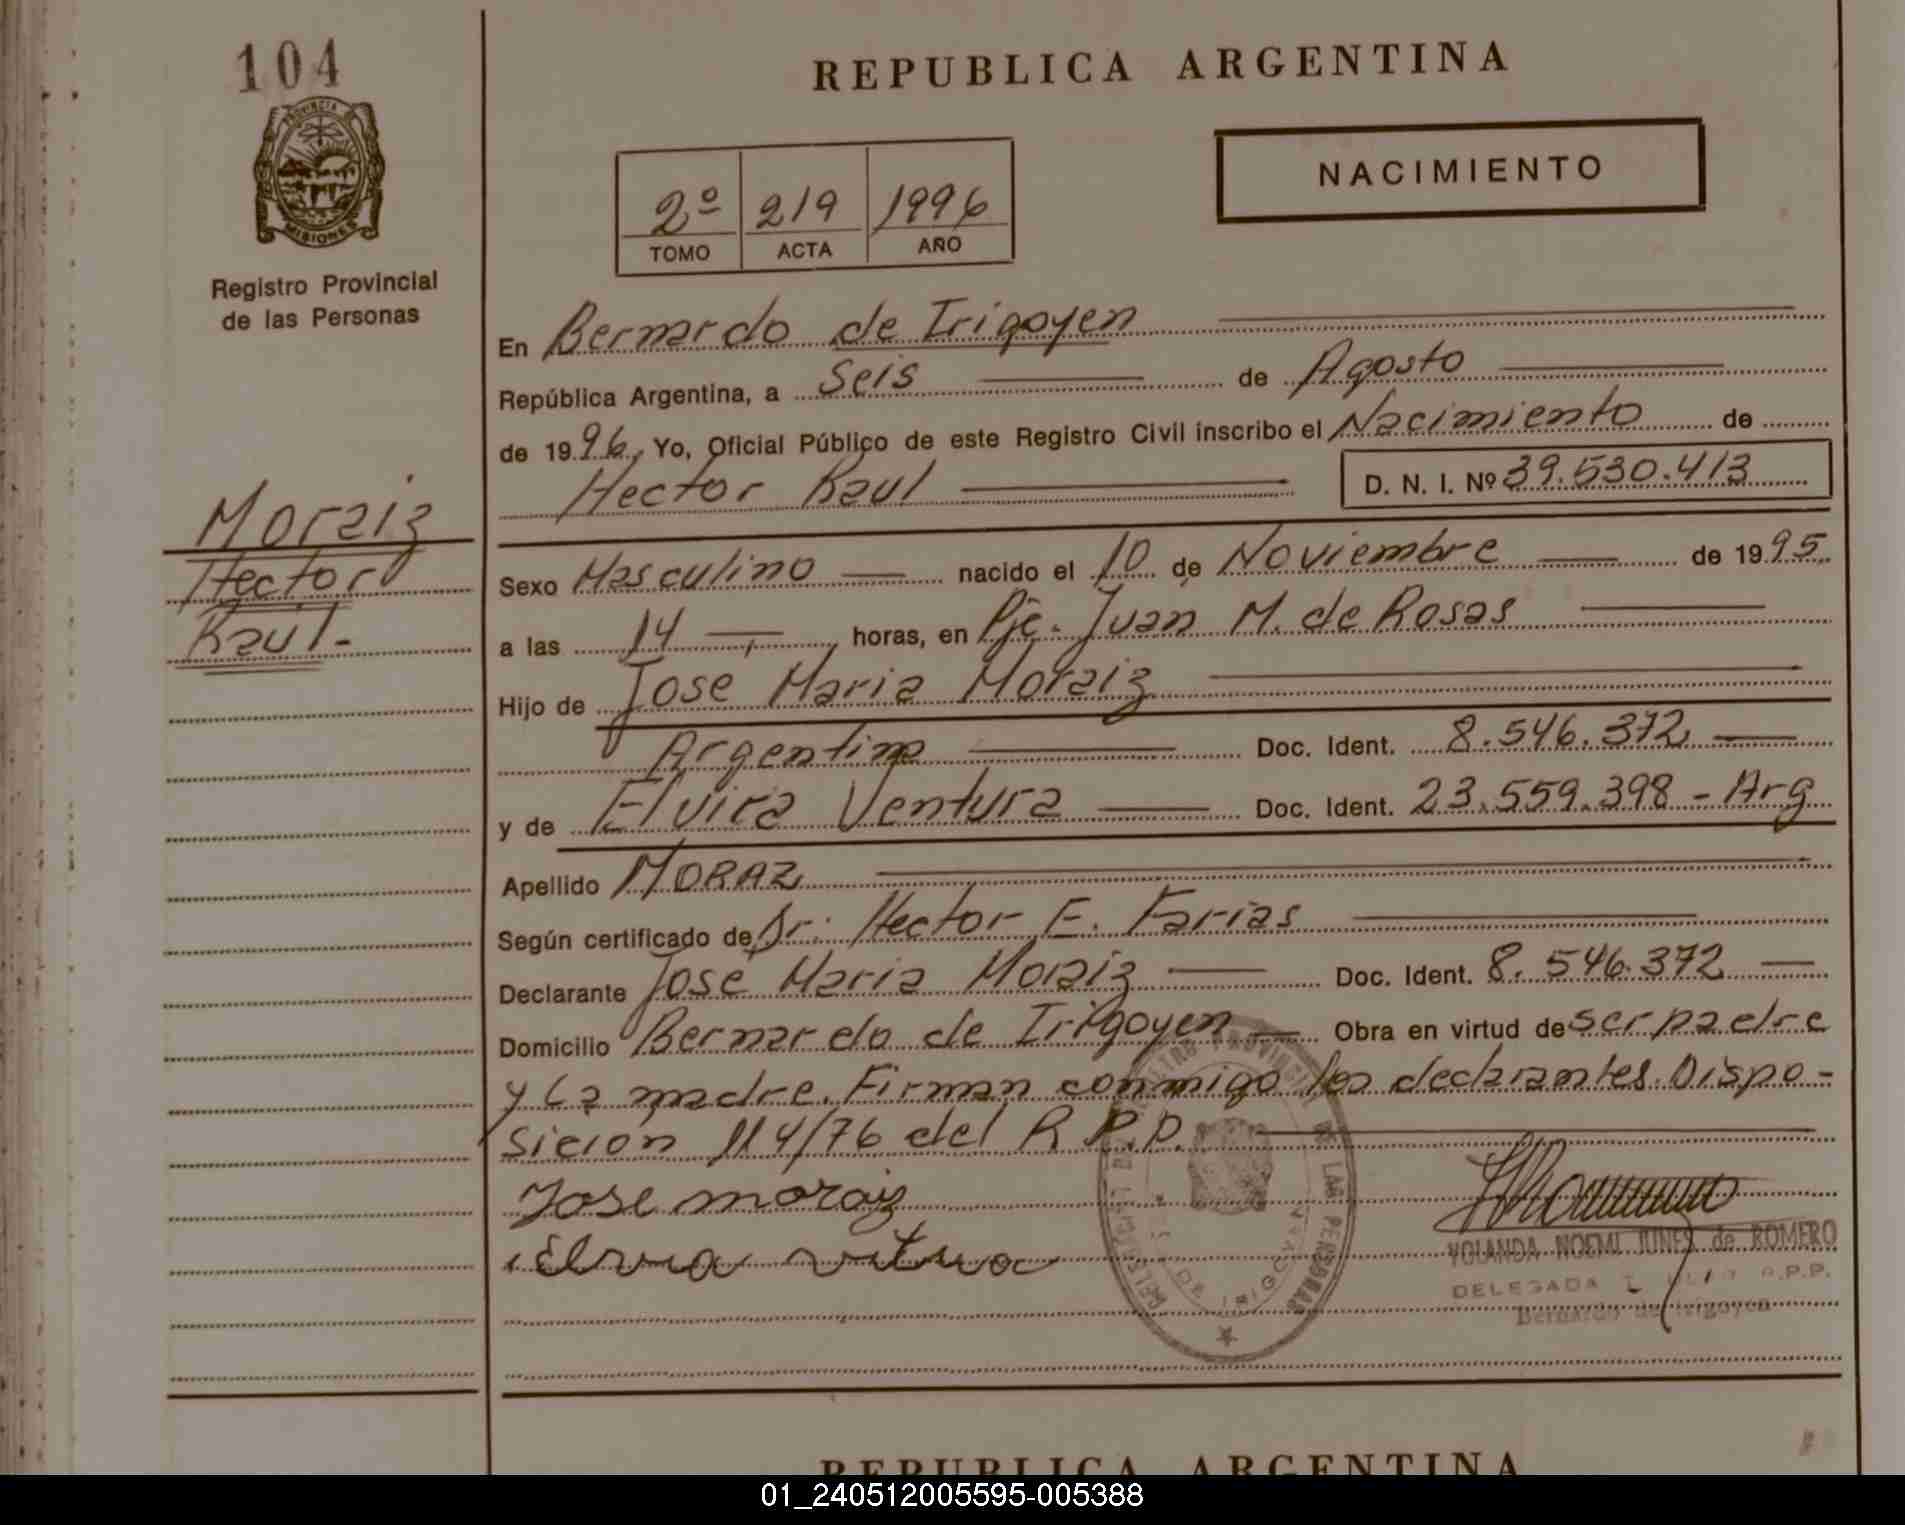 104
PROVINCIA
MISIONES
Registro Provincial
de las Personas
Moraiz
Hector
Raul.-
REPUBLICA ARGENTINA
NACIMIENTO
2º 219 1996
TOMO ACTA AÑO
En Bernardo de Irigoyen
República Argentina, a Seis de Agosto
de 1996, Yo, Oficial Público de este Registro Civil inscribo el Nacimiento de
Hector Raul D. N. I. Nº 39.530.413
Sexo Masculino nacido el 10 de Noviembre de 1995
a las 14 horas, en Pje. Juan M. de Rosas
Hijo de Jose Maria Moraiz
Argentino Doc. Ident. 8.546.372
y de Elvira Ventura Doc. Ident. 23.559.398 - Arg
Apellido MORAZ
Según certificado de Dr. Hector E. Farias
Declarante José Maria Moraiz Doc. Ident. 8.546.372
Domicilio Bernardo de Irigoyen Obra en virtud de ser padre
y la madre. Firman conmigo los declarantes. Dispo-
sicion 114/76 del R.P.P.
Jose moraiz
YOLANDA NOEMI JUNES de ROMERO
DELEGADA R.P.P.
Bernardo de Irigoyen
REPUBLICA ARGENTINA
01_240512005595-005388